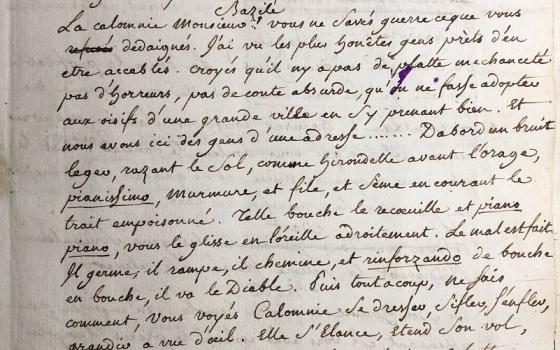 Bazile
La calomnie Monsieur! vous ne savés guerre ceque vous
dédaignés. J'ai vu les plus honêtes gens prèts d'en
etre accablés. croyés qu'il ny a pas de platte mechanceté
pas d'Horreurs, pas de conte absurde, qu'on ne fasse adopter
aux oisifs d'une grande ville en s'y prenant bien. Et
nous avons ici des gens d'une adresse........ Dabord un bruit
leger, razant le sol, comme hirondelle avant l'orage,
pianissimo, murmure, et file, et seme en courant le
trait empoisonné. Telle bouche le recoeuille et piano
piano, vous le glisse en l'oreille adroitement. Le mal est fait.
Il germe, il rampe, il chemine, et rinforzando de bouche
en bouche, il va le Diable. Puis tout acoup, ne sais
comment, vous voyés Calomnie se dresser, sifler, s'enfler,
grandir a vue d'oeil. Elle s'Elance, Etend son vol,